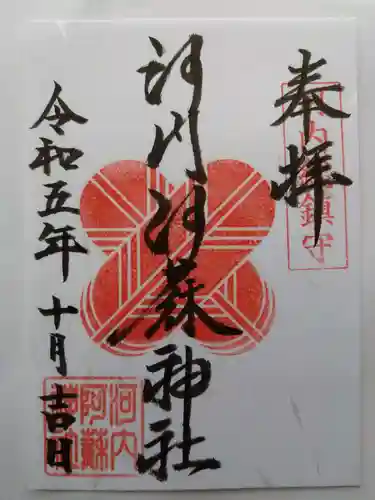 奉拝
内 鎮守
河内阿蘇神社
令和五年十月吉日
河内
阿蘇
神社